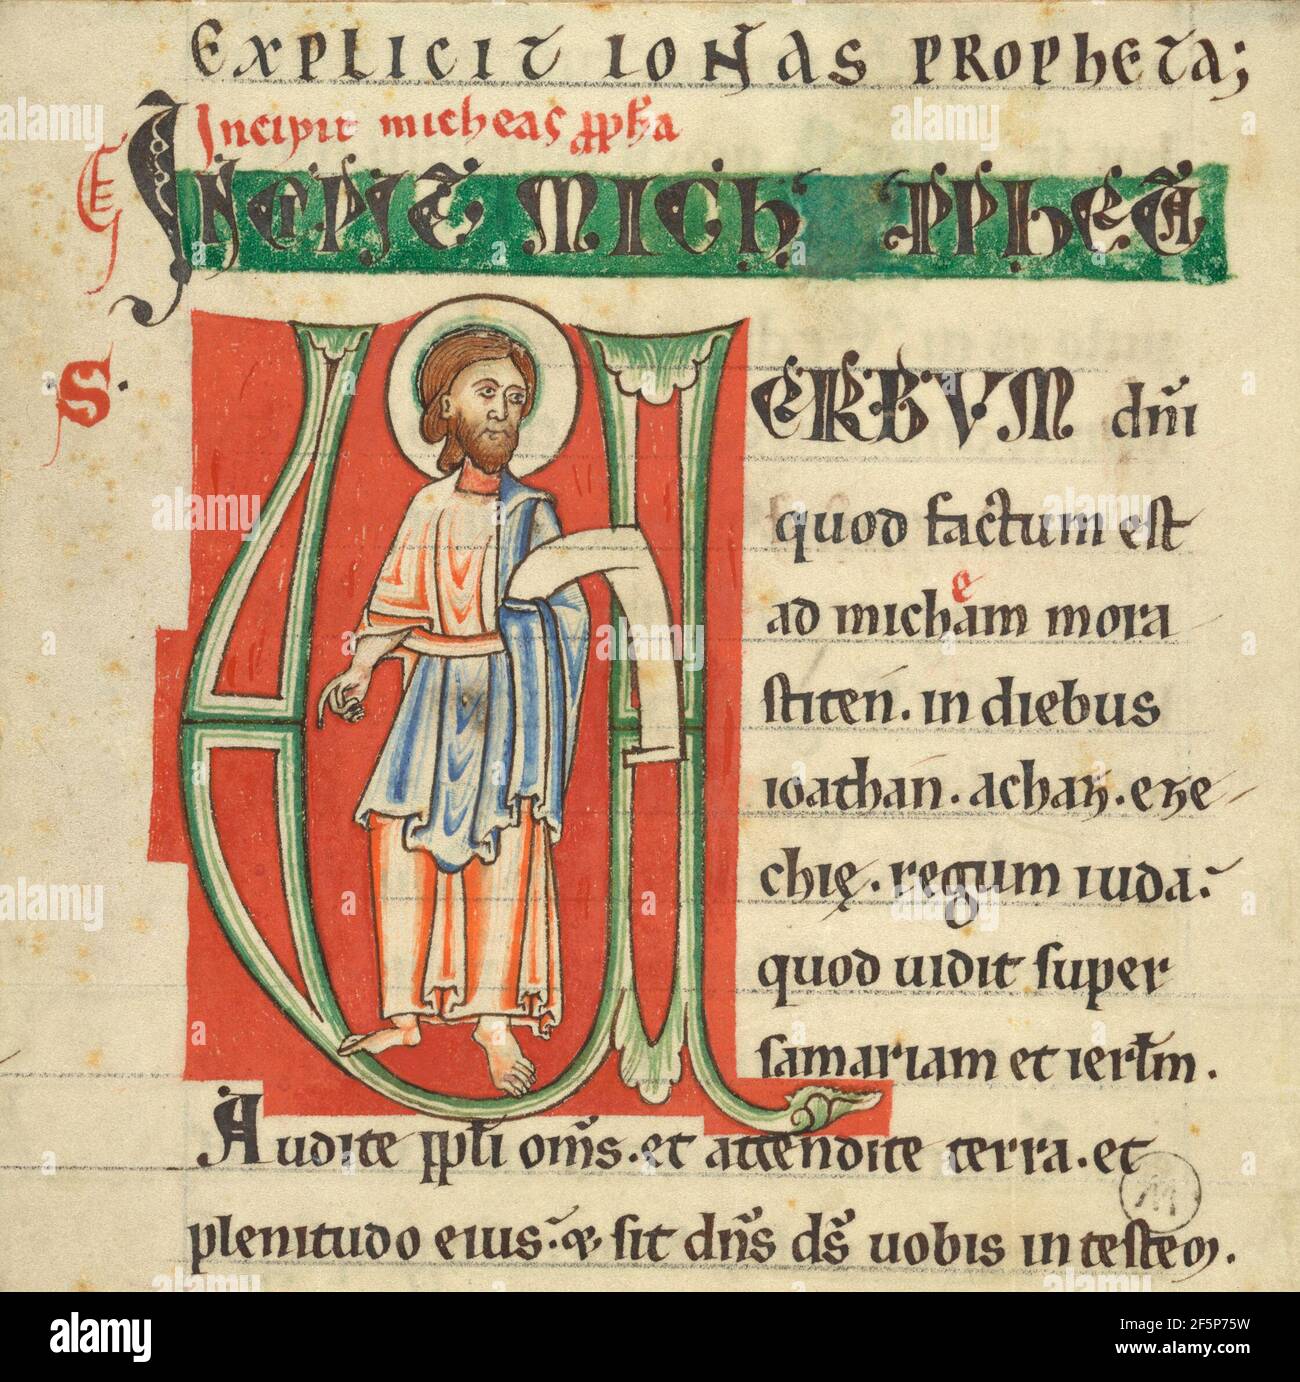 EXPLICIT IONAS PROPHETA;
Incipit micheas ꝓph̄a
INCIPIT MICH' PPHETA
S.
VERBVM dn̄i
quod factum est
e
ad micham mora
stiten. in diebus
ioathan. achaz. eze
chię. regum iuda.
quod uidit super
samariam et ierl̄m.
Audite ppl̄i om̄s. et attendite terra. et
plenitudo eius. & sit dn̄s ds̄ uobis in testem.
M
alamy
Image ID: 2F5P75W
www.alamy.com